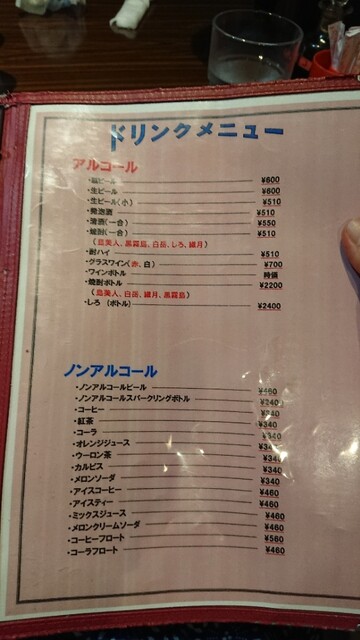 ドリンクメニュー
アルコール
・瓶ビール ¥600
・生ビール ¥600
・生ビール(小) ¥510
・発泡酒 ¥510
・清酒(一合) ¥550
・焼酎(一合) ¥510
(島美人、黒霧島、白岳、しろ、繊月)
・酎ハイ ¥510
・グラスワイン(赤、白) ¥700
・ワインボトル 時価
・焼酎ボトル ¥2200
(島美人、白岳、繊月、黒霧島)
・しろ (ボトル) ¥2400
ノンアルコール
・ノンアルコールビール ¥460
・ノンアルコールスパークリングボトル
・コーヒー ¥340
・紅茶 ¥340
・コーラ ¥340
・オレンジジュース
・ウーロン茶
・カルピス ¥340
・メロンソーダ ¥340
・アイスコーヒー ¥460
・アイスティー ¥460
・ミックスジュース ¥460
・メロンクリームソーダ ¥460
・コーヒーフロート ¥560
・コーラフロート ¥460